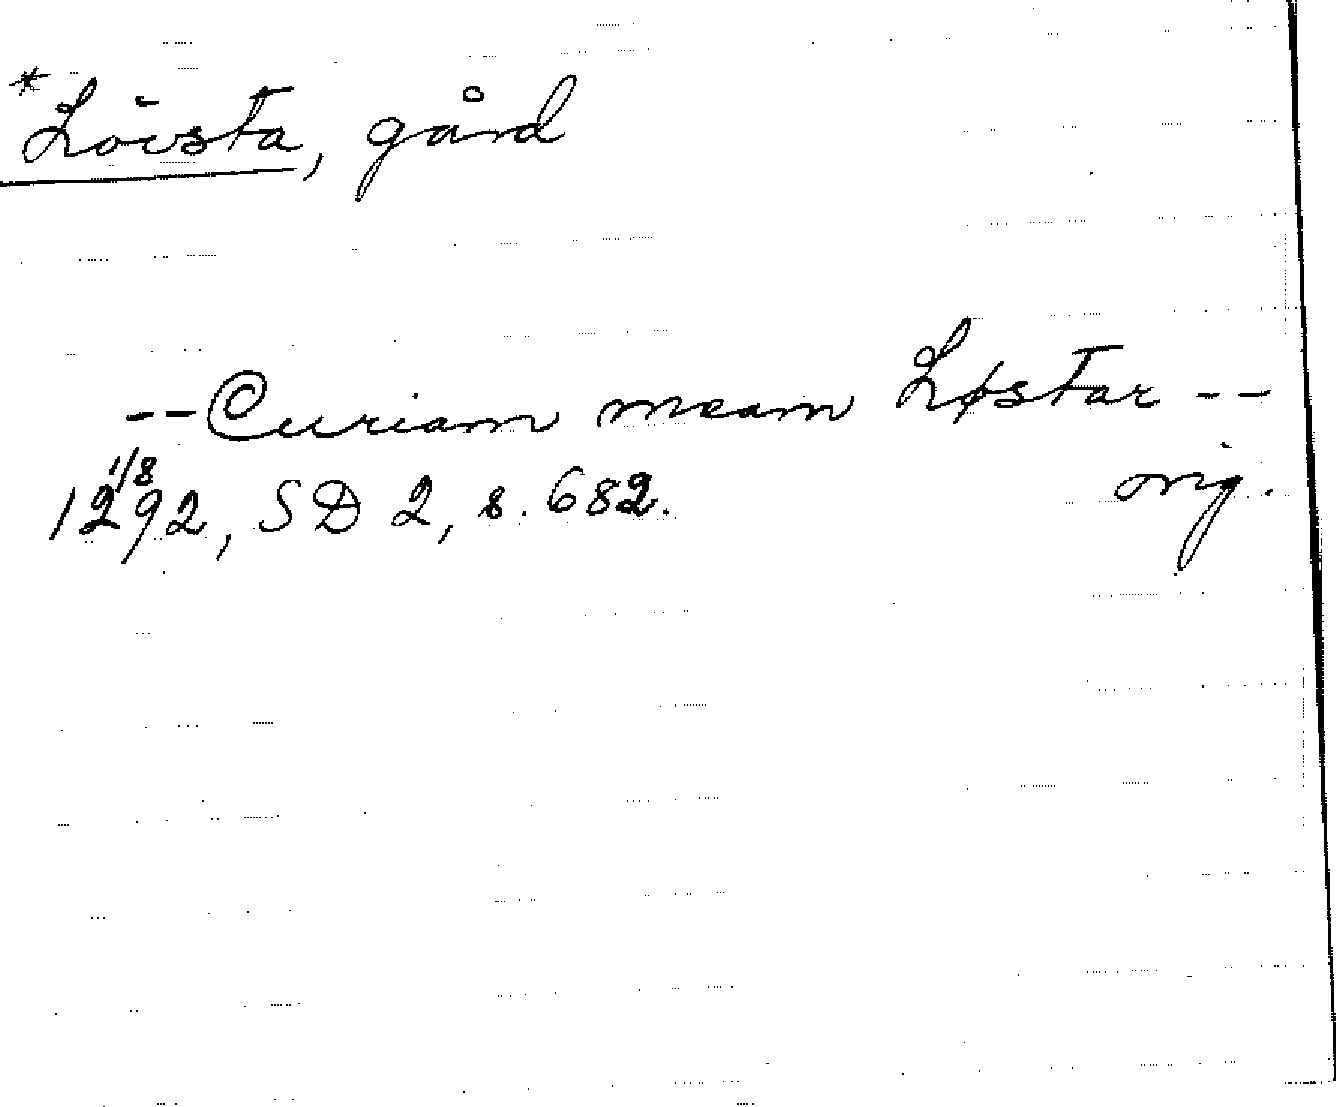 *Lövsta, gård
-- Curiam meam Løstar --
1/8
1292, SD 2, s. 682. orig.